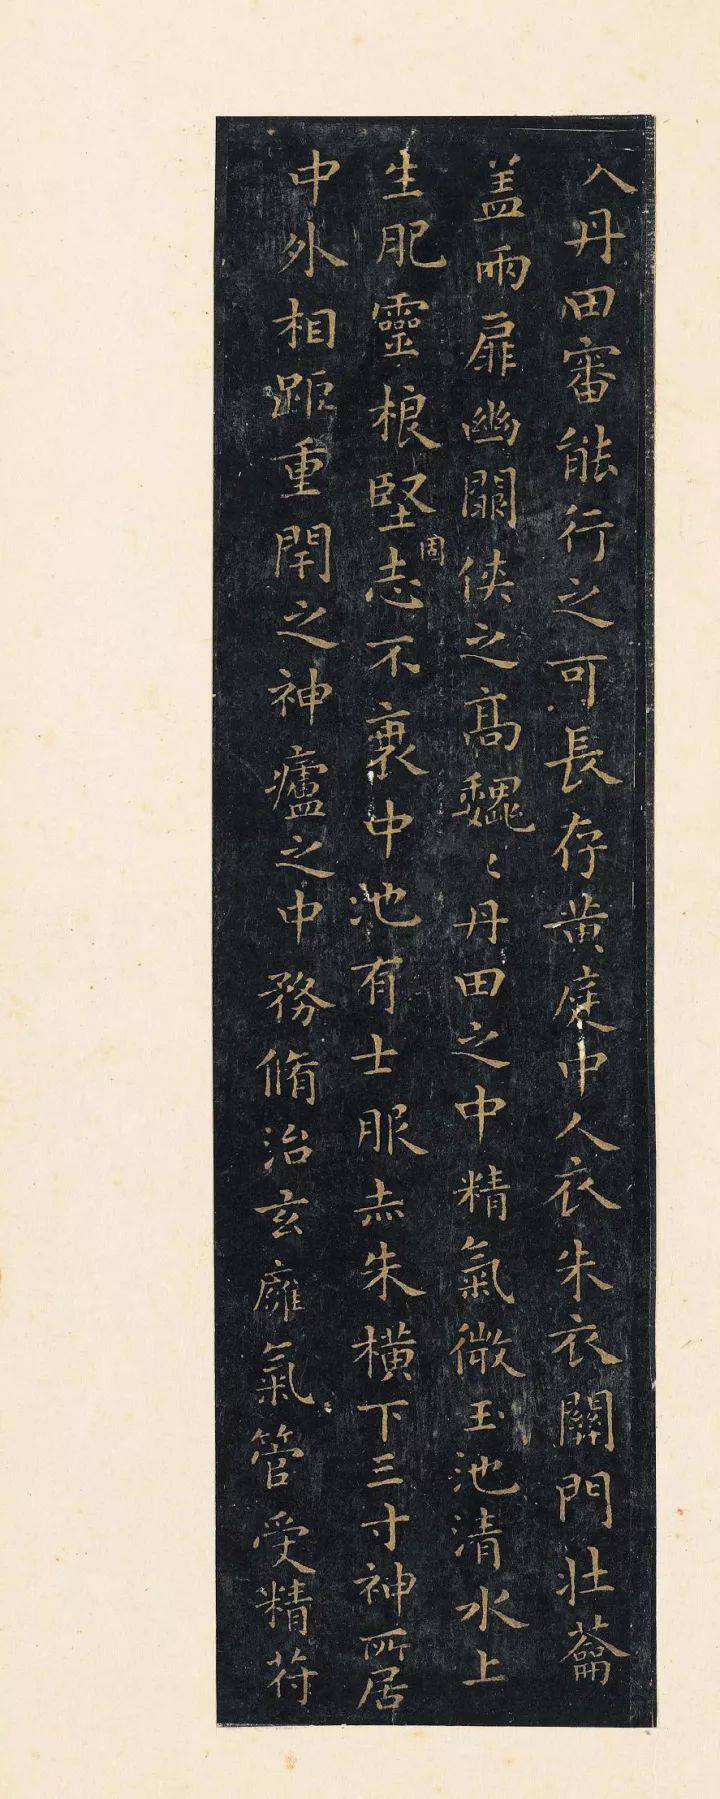 入丹田審能行之可長存黃庭中人衣朱衣關門壯蘥
盖兩扉幽關俠之高魏〻丹田之中精氣微玉池清水上
生肥靈根堅固志不衰中池有士服赤朱横下三寸神所居
中外相距重閇之神廬之中務脩治玄廱氣管受精苻